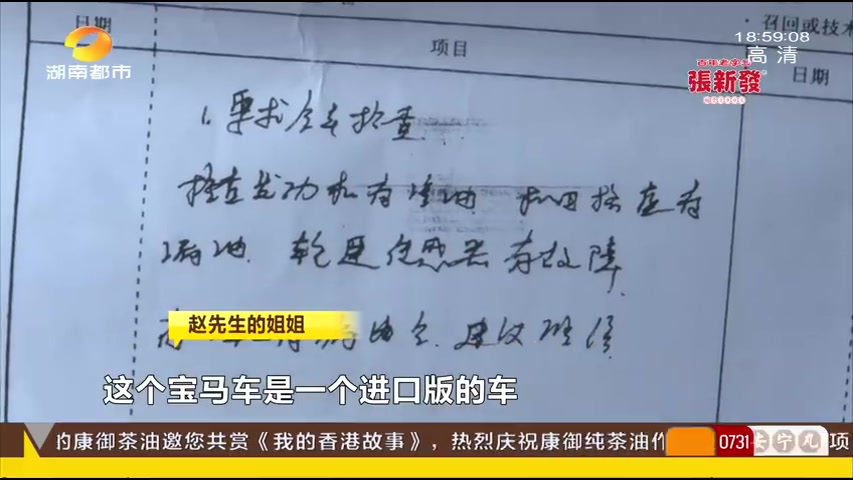 日期
湖南都市
项目
·召回或技术
18:59:08
高清
百年老字号
張新發
日期
1.要求全车检查
检查发动机有渗油 机油格座有
漏油 轮速传感器有故障
建议维修
赵先生的姐姐
这个宝马车是一个进口版的车
的康御茶油邀您共赏《我的香港故事》，热烈庆祝康御纯茶油作
0731
安宁丸
项